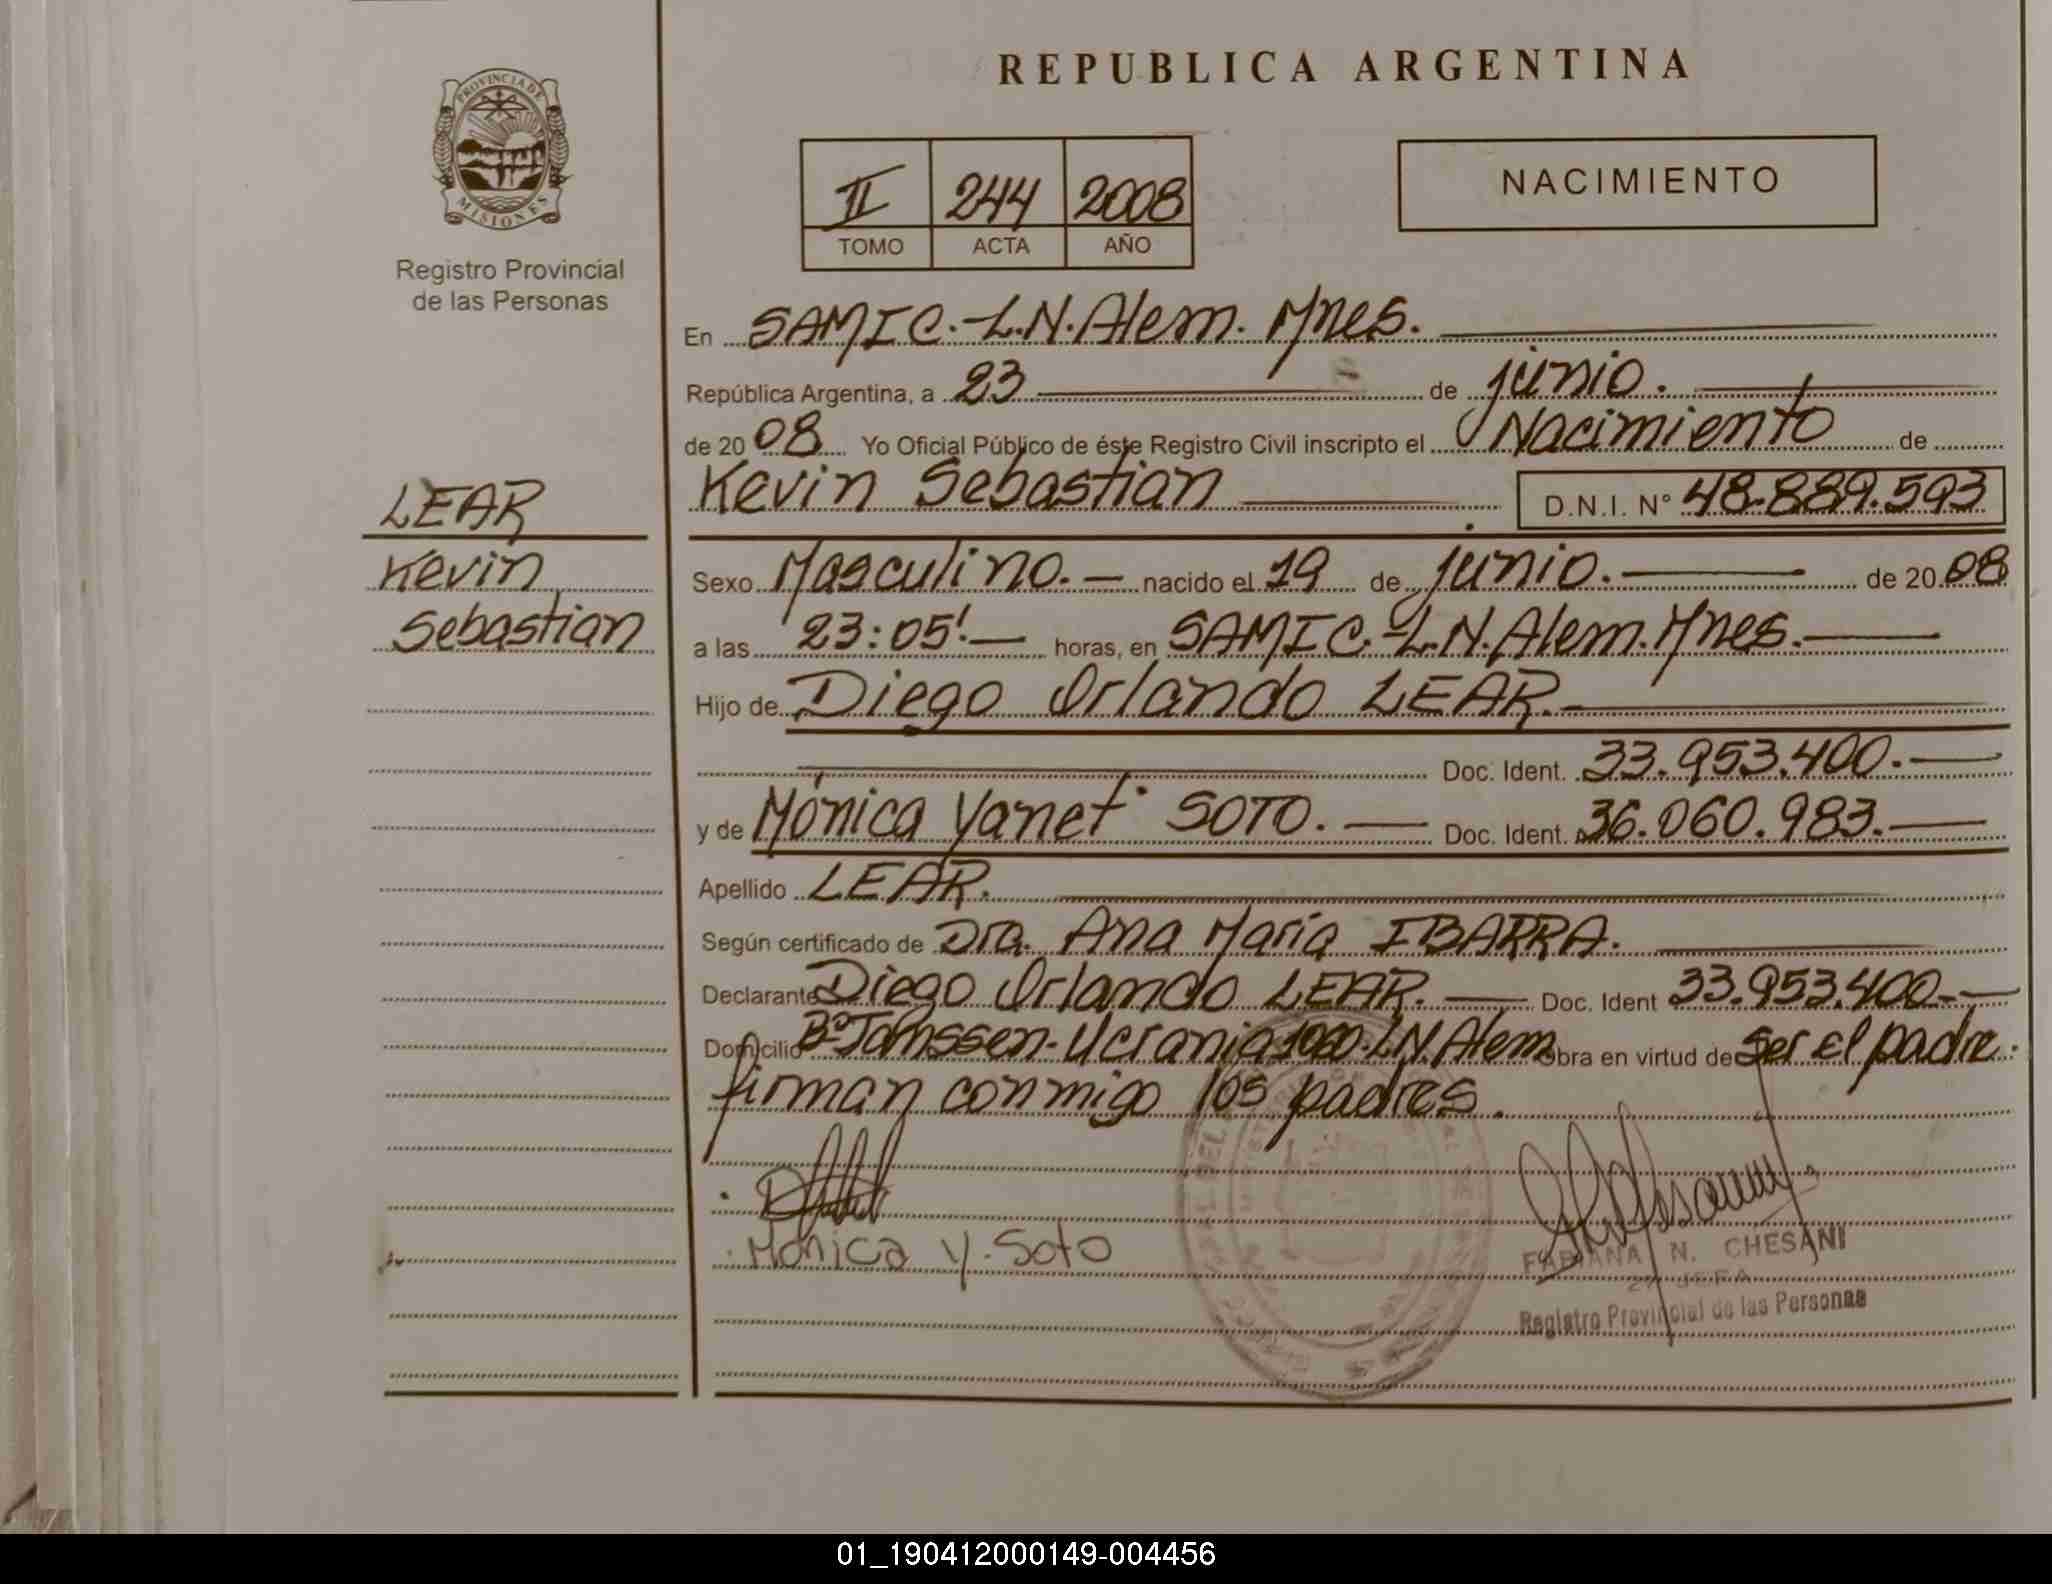 REPUBLICA ARGENTINA
PROVINCIA DE
MISIONES
Registro Provincial
de las Personas
II 244 2008
TOMO ACTA AÑO
NACIMIENTO
En SAMIC.-L.N.Alem. Mnes.
República Argentina, a 23 de junio.
de 20 08 Yo Oficial Público de éste Registro Civil inscripto el Nacimiento de
Kevin Sebastian D.N.I. N° 48.889.593
LEAR
Kevin
Sebastian
Sexo Masculino.- nacido el 19 de junio. de 20 08
a las 23:05'.- horas, en SAMIC.-L.N.Alem.Mnes.-
Hijo de Diego Orlando LEAR.
Doc. Ident. 33.953.400.-
y de Mónica Yanet SOTO.- Doc. Ident. 36.060.983.-
Apellido LEAR.
Según certificado de Dra. Ana María IBARRA.
Declarante Diego Orlando LEAR.- Doc. Ident 33.953.400.-
Domicilio B° Janssen-Ucrania 1000-L.N.Alem Obra en virtud de ser el padre.
firman conmigo los padres.
Mónica Y. Soto
FABIANA N. CHESANI
2° JEFA
Registro Provincial de las Personas
01_190412000149-004456